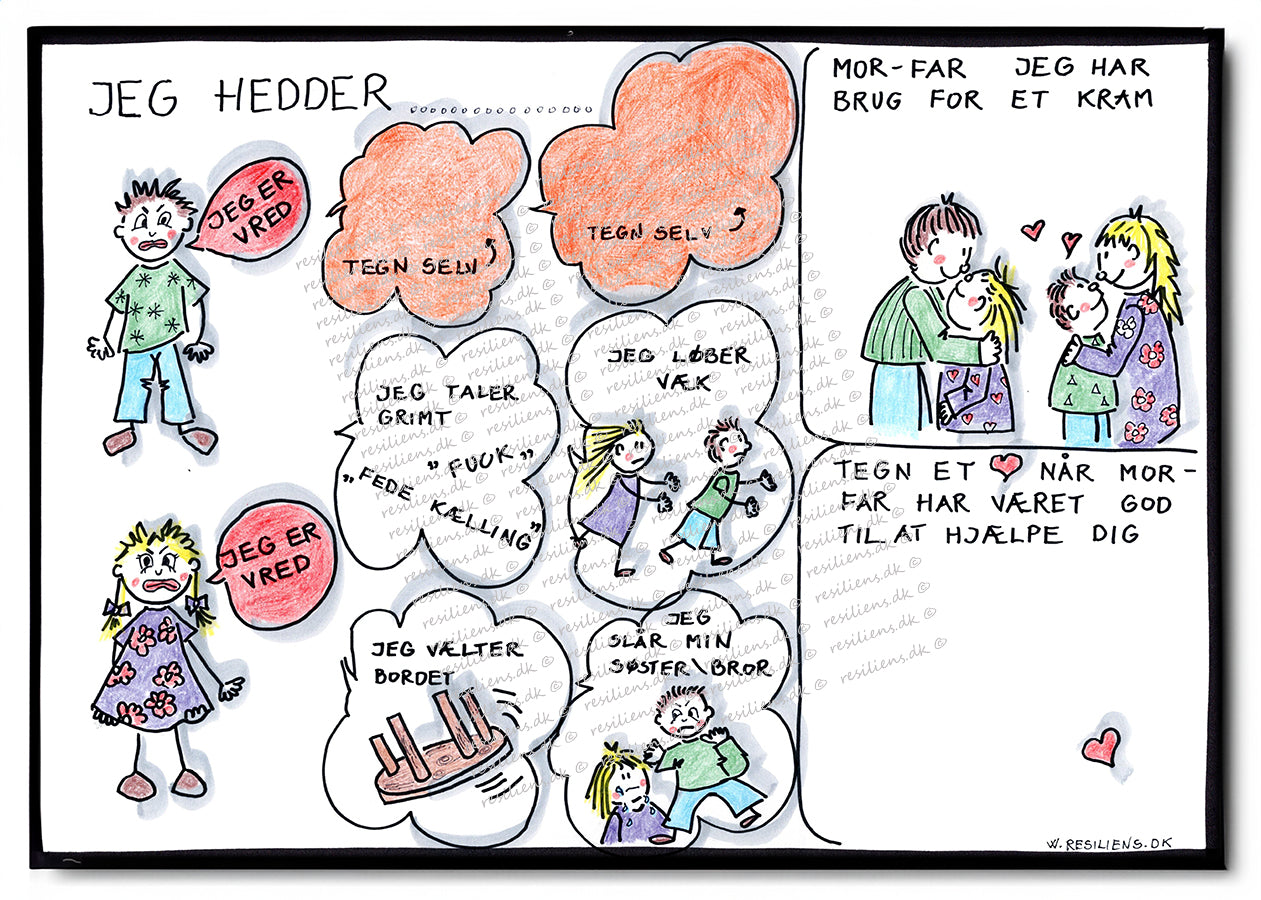 JEG HEDDER ....................
JEG ER
VRED
TEGN SELV
TEGN SELV
JEG TALER
GRIMT
"FUCK"
"FEDE
KÆLLING"
JEG LØBER
VÆK
JEG ER
VRED
JEG VÆLTER
BORDET
JEG
SLÅR MIN
SØSTER\BROR
MOR-FAR JEG HAR
BRUG FOR ET KRAM
TEGN ET ♥ NÅR MOR-
FAR HAR VÆRET GOD
TIL AT HJÆLPE DIG
W.RESILIENS.DK
resiliens.dk ©